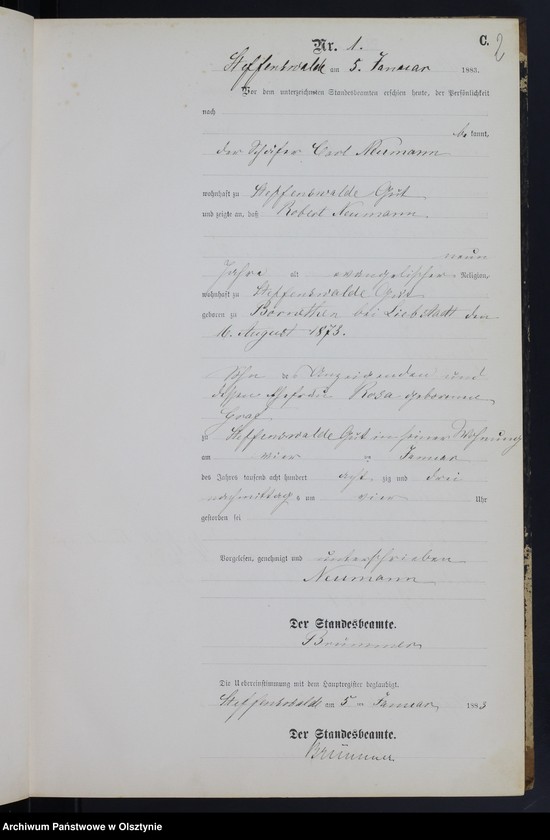 C. 2
Nr. 1.
Steffenswalde am 5. Januar 1883.
Vor dem unterzeichneten Standesbeamten erschien heute, der Persönlichkeit
nach
be kannt,
der Schäfer Carl Neumann
wohnhaft zu Steffenswalde Gut
und zeigte an, daß Robert Neumann,
neun
Jahre alt evangelischer Religion,
wohnhaft zu Steffenswalde Gut
geboren zu bei Liebstadt den
16. August 1873.
Sohn des Anzeigenden und
dessen Ehefrau Rosa geborenen
zu Steffenswalde Gut in seiner Wohnung
am vier ten Januar
des Jahres tausend acht hundert acht zig und drei
nachmittag s um vier Uhr
gestorben sei
Vorgelesen, genehmigt und unterschrieben
Neumann
Der Standesbeamte.
Brümmer
Die Uebereinstimmung mit dem Hauptregister beglaubigt.
Steffenswalde am 5 ten Januar 1883
Der Standesbeamte.
Brümmer
Archiwum Państwowe w Olsztynie